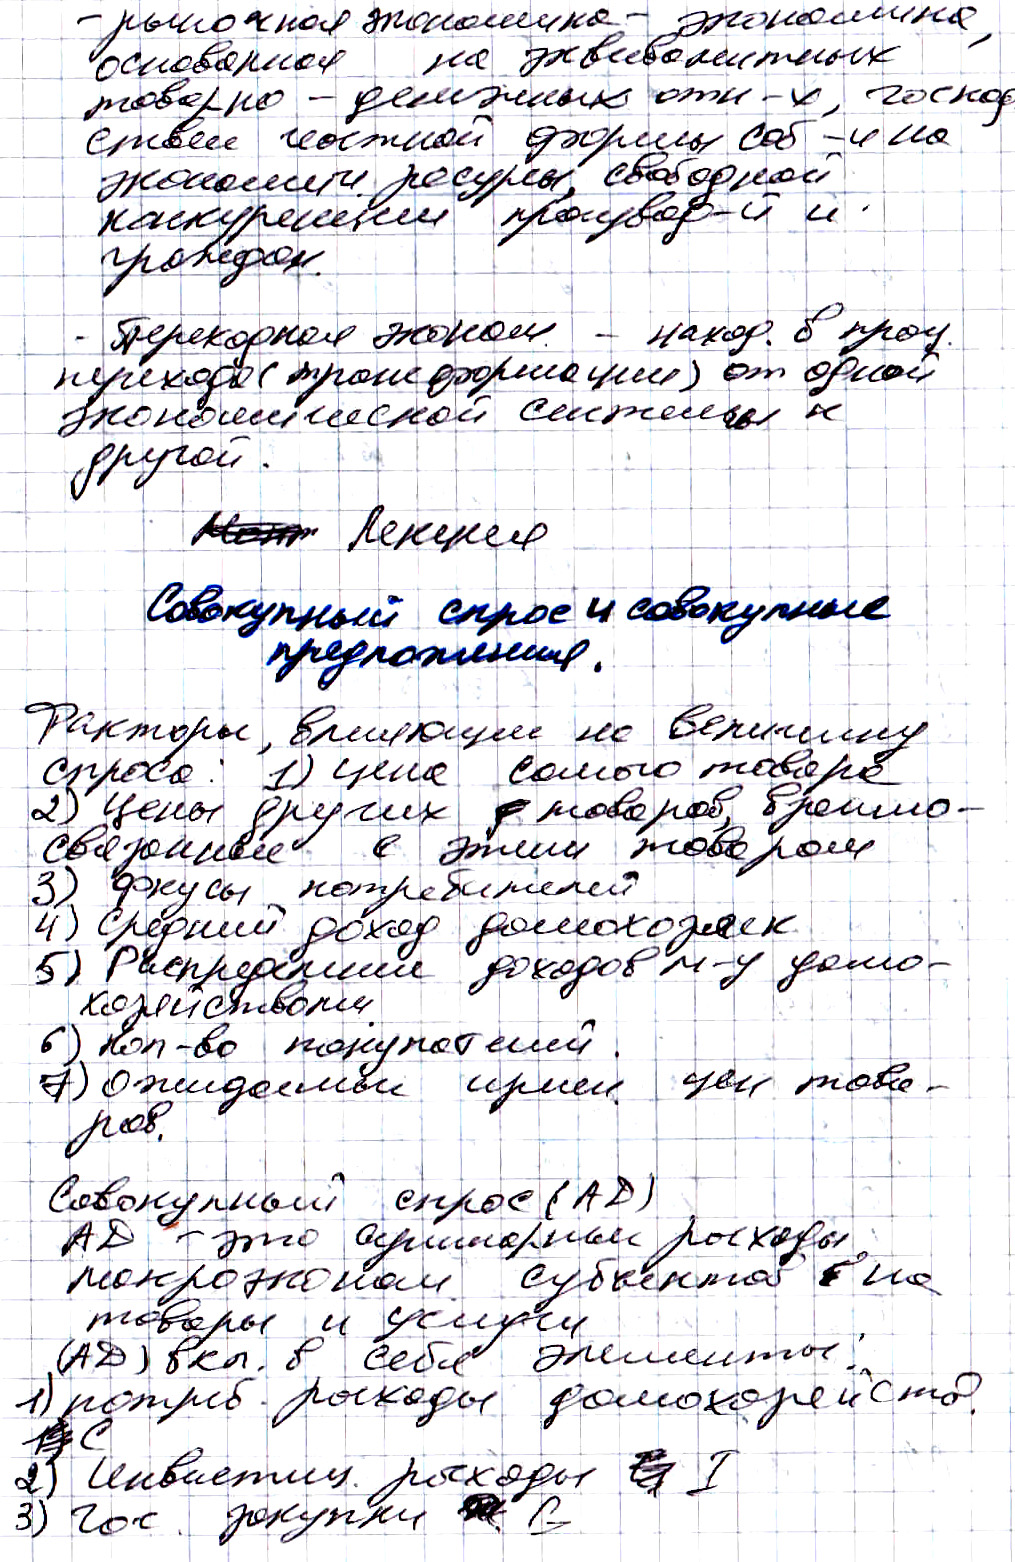 - рыночная экономика - экономика,
основанная на эквивалентных
товарно - денежных отн-х, господ
ствии частной формы соб-и на
экономич. ресурсы, свободной
конкуренции производ-й и
граждан.
- Переходная эконом. - наход. в проц.
перехода (трансформации) от одной
экономической системы к
другой.
Лекция
Совокупный спрос и совокупные
предложения.
Факторы, влияющие на величину
спроса: 1) цена самого товара
2) Цены других товаров, взаимо-
связанные с этим товаром
3) Вкусы потребителей
4) Средний доход домохозяек
5) Распределение доходов м-у домо-
хозяйствами
6) Кол-во покупателей.
7) Ожидаемые измен. цен това-
ров.
Совокупный спрос (AD)
AD - это суммарные расходы
макроэконом. субъектов на
товары и услуги
(AD) вкл. в себя элементы:
1) потреб. расходы домохозяйств.
C
2) Инвестиц. расходы I
3) Гос. закупки G